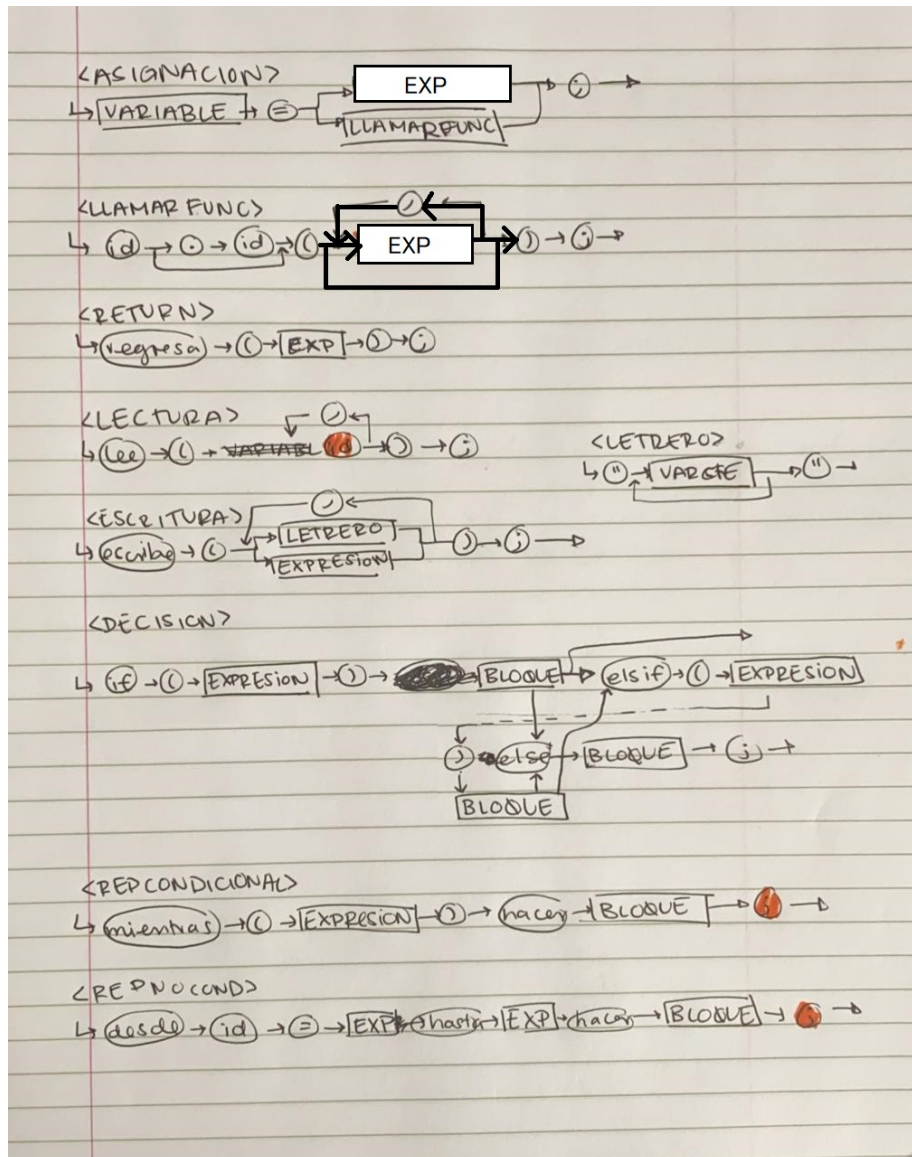 <ASIGNACION>
VARIABLE = EXP ;
LLAMARFUNC
<LLAMAR FUNC>
id . id ( , EXP ) ;
<RETURN>
regresa ( EXP ) ;
<LECTURA>
,
lee ( VARIABL id ) ;
<LETRERO>
" VARCTE "
<ESCRITURA>
,
escribe ( LETRERO ) ;
EXPRESION
<DECISION>
if ( EXPRESION ) BLOQUE elsif ( EXPRESION
) else BLOQUE ;
BLOQUE
<REPCONDICIONAL>
mientras ( EXPRESION ) hacer BLOQUE ;
<REPNOCOND>
desde id = EXP hasta EXP hacer BLOQUE ;